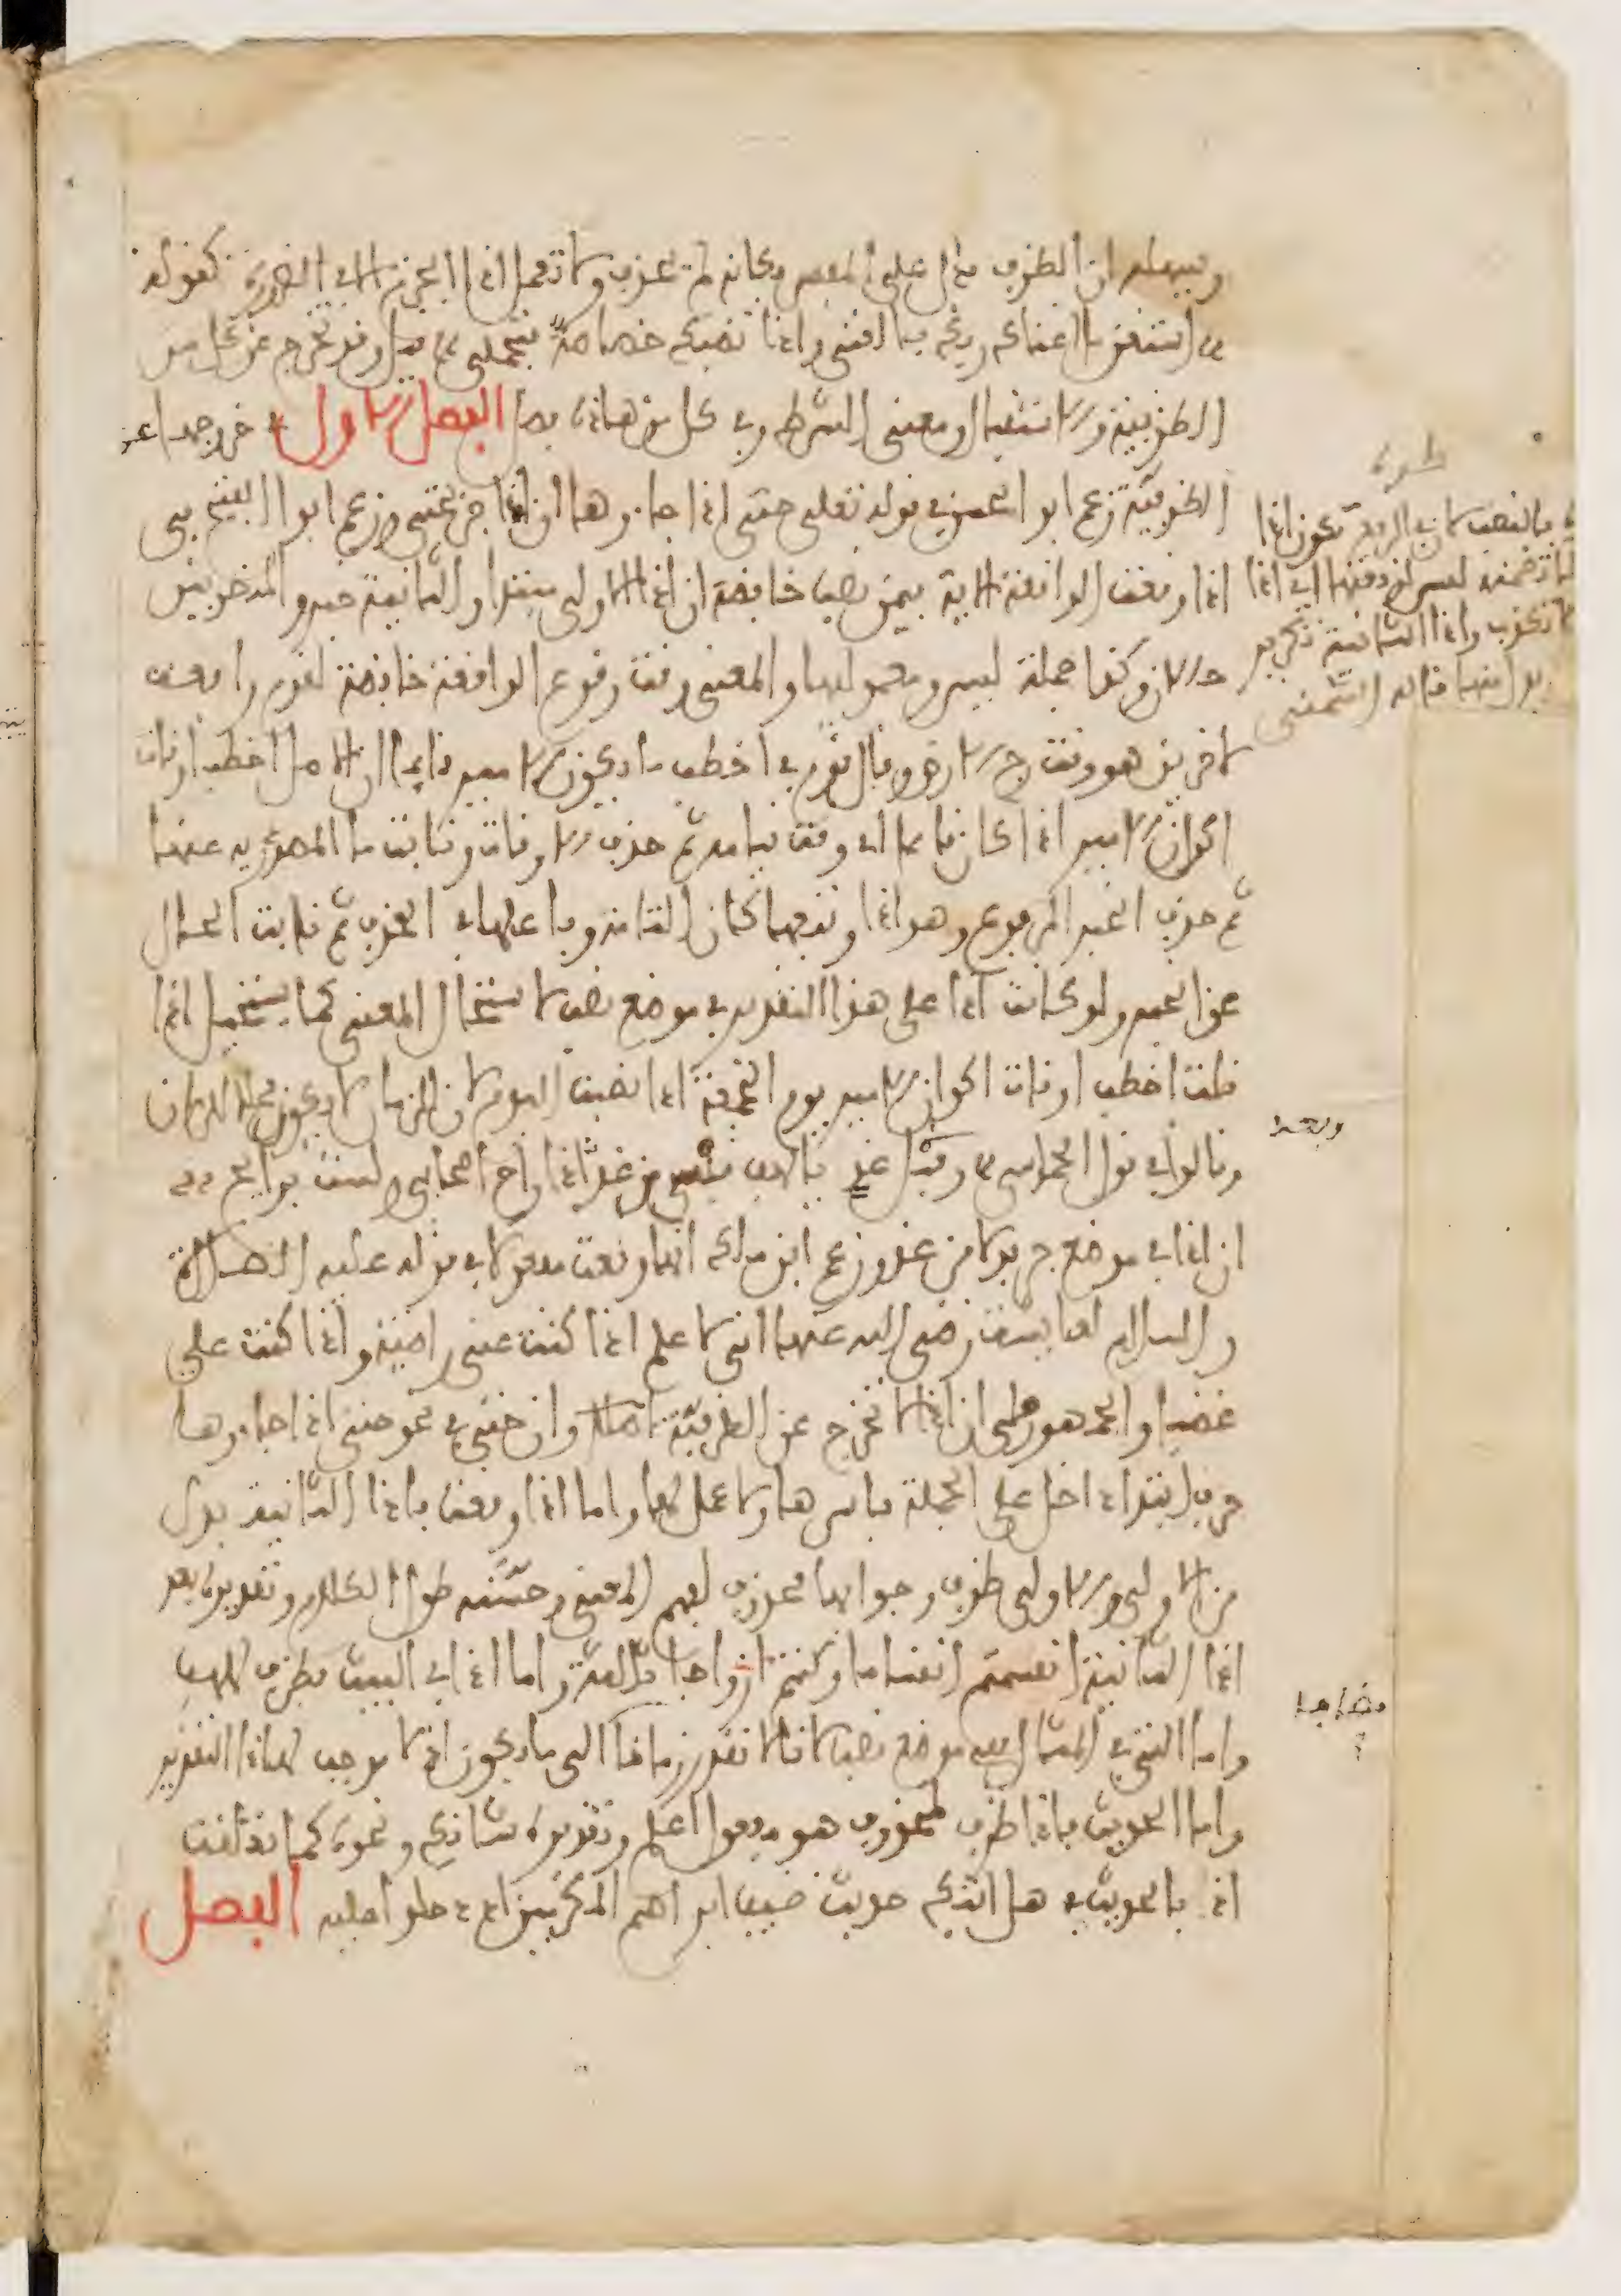 وسهله ان الظرف يدل على المفسر فكانه لم يحذف ولا تعمل اذا الجزم الا في الضرورة كقوله
استغن ما اغناك ربك بالغنى واذا تصبك خصاصة فتجمل قيل وقد تخرج عن كل من
الظرفية والاستقبال ومعنى الشرط وفي كل من هذه فصل الفصل الاول في خروجها عن
الظرفية زعم ابو الحسن في قوله تعلى حتى اذا جاءوها ان اذا جر بحتى وزعم ابو الفتح في
اذا وقعت الواقعة الاية فيمن نصب خافضة ان اذا الاولى مبتدا والثانية خبر والمنصوبين
حالان وكذا جملة ليس ومعموليها والمعنى وقت وقوع الواقعة خافضة لقوم رافعة
لاخرين هو وقت رج الارض وقال قوم في اخطب ما يكون الامير قائما ان الاصل اخطب اوقات
اكوان الامير اذا كان قائما اي وقت قيامه ثم حذف الاوقات ونابت ما المصدرية عنها
ثم حذف الخبر المرفوع وهو اذا وتبعها كان التامة وفاعلها في الحذف ثم نابت الحال
عن الخبر ولو كانت اذا على هذا التقدير في موضع نصب لاستحال المعنى كما يستحيل اذا
قلت اخطب اوقات اكوان الامير يوم الجمعة اذا نصبت اليوم لان الزمان لا يكون محلا للزمان
وقالوا في قول الحماسي وقبل غد يا لهف نفسي من غد اذا راح اصحابي ولست برائح
ان اذا في موضع جر بدلا من غد وزعم ابن مالك انها وقعت مفعولا في قوله عليه الصلاة
والسلام لعائشة رضي الله عنها اني لاعلم اذا كنت عني راضية واذا كنت علي
غضبى والجمهور على ان اذا لا تخرج عن الظرفية اصلا وان حتى في نحو حتى اذا جاءوها
حرف ابتداء دخل على الجملة باسرها ولا عمل لها واما اذا وقعت فاذا الثانية بدل
من الاولى والاولى ظرف وجوابها محذوف لفهم المعنى وحسنه طول الكلام وتقديره بعد
اذا الثانية انقسمتم اقساما وكنتم ازواجا ثلاثة واما اذا في البيت فظرف للهف
واما التي في المثال ففي موضع نصب لانا لا نقدر زمانا الى ما يكون اذ لا موجب لهذا التقدير
واما الحديث فاذا ظرف لمحذوف هو مفعول اعلم وتقديره شانك ونحوه كما تعلقت
اذ بالحديث في هل اتيك حديث ضيف ابراهيم المكرمين اذ دخلوا عليه الفصل
طرة
بالنصب لان الرفع تكون اذا
لما تضمنه ليس لوقعتها اي اذا
لا تكذب واذا الثانية تكرير
بدل منها قاله الشمني
وبعد
مضافها